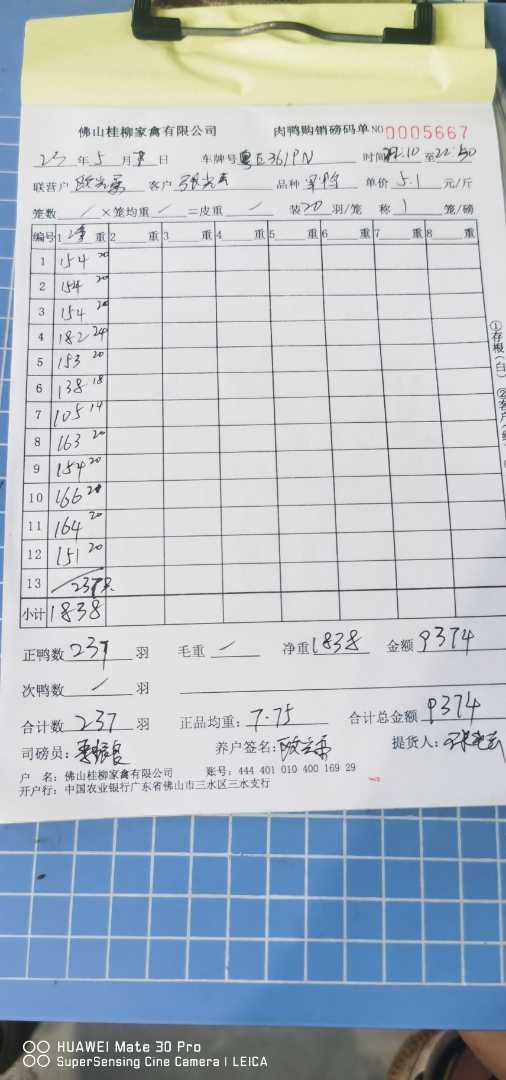 佛山桂柳家禽有限公司 肉鸭购销磅码单 NO 0005667
23 年 5 月 日 车牌号 粤E361PN 时间 .10 至 22:50
联营户 客户 品种 单价 5.1 元/斤
笼数 / ×笼均重 / =皮重 / 装 20 羽/笼 称 1 笼/磅
编号 1 重 2 重 3 重 4 重 5 重 6 重 7 重 8 重
1 154 20
2 154 20
3 154 20
4 182 24
5 153 20
6 138 18
7 105 14
8 163 20
9 154 20
10 166
11 164 20
12 151 20
13 237只
小计 1838
正鸭数 237 羽 毛重 / 净重 1838 金额 9374
次鸭数 / 羽
合计数 237 羽 正品均重: 7.75 合计总金额 9374
司磅员: 养户签名: 提货人:
户 名: 佛山桂柳家禽有限公司 账号: 444 401 010 400 169 29
开户行: 中国农业银行广东省佛山市三水区三水支行
①存根(白)
HUAWEI Mate 30 Pro
SuperSensing Cine Camera | LEICA